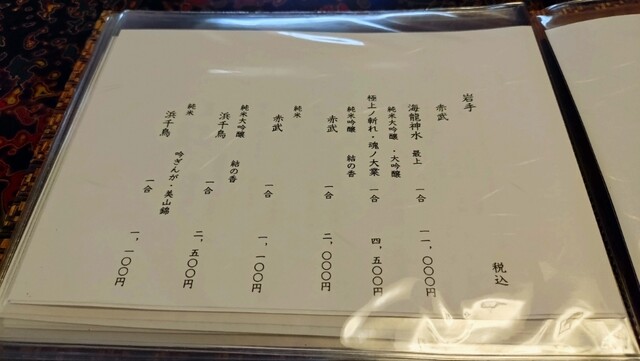 税込
岩手
赤武
海龍神水 最上 一合 一一、〇〇〇円
純米大吟醸・大吟醸
極上ノ斬れ・魂ノ大業 一合 四、五〇〇円
純米吟醸 結の香
赤武 一合 二、〇〇〇円
純米
赤武 一合 一、一〇〇円
純米大吟醸 結の香
浜千鳥 一合 二、五〇〇円
純米 吟ぎんが・美山錦
浜千鳥 一合 一、一〇〇円